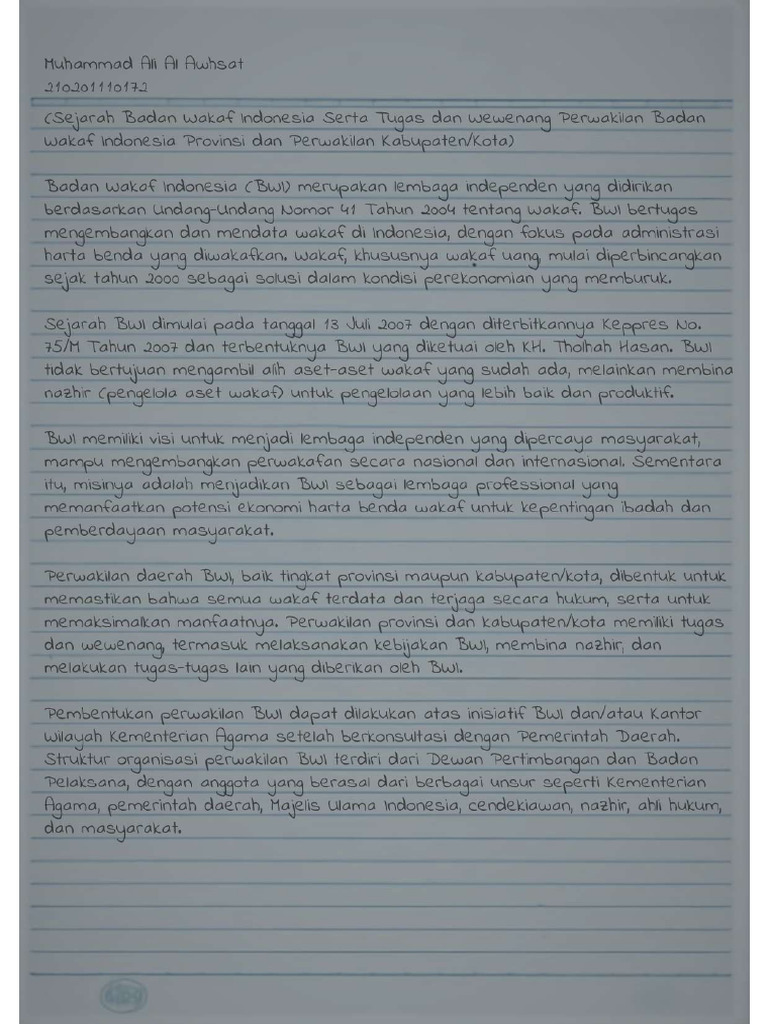 Muhammad Ali Al Awhsat
210201110172
(Sejarah Badan Wakaf Indonesia Serta Tugas dan Wewenang Perwakilan Badan
Wakaf Indonesia Provinsi dan Perwakilan Kabupaten/Kota)
Badan Wakaf Indonesia (BWI) merupakan lembaga independen yang didirikan
berdasarkan Undang-Undang Nomor 41 Tahun 2004 tentang wakaf. BWI bertugas
mengembangkan dan mendata wakaf di Indonesia, dengan fokus pada administrasi
harta benda yang diwakafkan. Wakaf, khususnya wakaf uang, mulai diperbincangkan
sejak tahun 2000 sebagai solusi dalam kondisi perekonomian yang memburuk.
Sejarah BWI dimulai pada tanggal 13 Juli 2007 dengan diterbitkannya Keppres No.
75/M Tahun 2007 dan terbentuknya BWI yang diketuai oleh KH. Tholhah Hasan. BWI
tidak bertujuan mengambil alih aset-aset wakaf yang sudah ada, melainkan membina
nazhir (pengelola aset wakaf) untuk pengelolaan yang lebih baik dan produktif.
BWI memiliki visi untuk menjadi lembaga independen yang dipercaya masyarakat,
mampu mengembangkan perwakafan secara nasional dan internasional. Sementara
itu, misinya adalah menjadikan BWI sebagai lembaga professional yang
memanfaatkan potensi ekonomi harta benda wakaf untuk kepentingan ibadah dan
pemberdayaan masyarakat.
Perwakilan daerah BWI, baik tingkat provinsi maupun kabupaten/kota, dibentuk untuk
memastikan bahwa semua wakaf terdata dan terjaga secara hukum, serta untuk
memaksimalkan manfaatnya. Perwakilan provinsi dan kabupaten/kota memiliki tugas
dan wewenang, termasuk melaksanakan kebijakan BWI, membina nazhir, dan
melakukan tugas-tugas lain yang diberikan oleh BWI.
Pembentukan perwakilan BWI dapat dilakukan atas inisiatif BWI dan/atau Kantor
Wilayah Kementerian Agama setelah berkonsultasi dengan Pemerintah Daerah.
Struktur organisasi perwakilan BWI terdiri dari Dewan Pertimbangan dan Badan
Pelaksana, dengan anggota yang berasal dari berbagai unsur seperti Kementerian
Agama, pemerintah daerah, Majelis Ulama Indonesia, cendekiawan, nazhir, ahli hukum,
dan masyarakat.